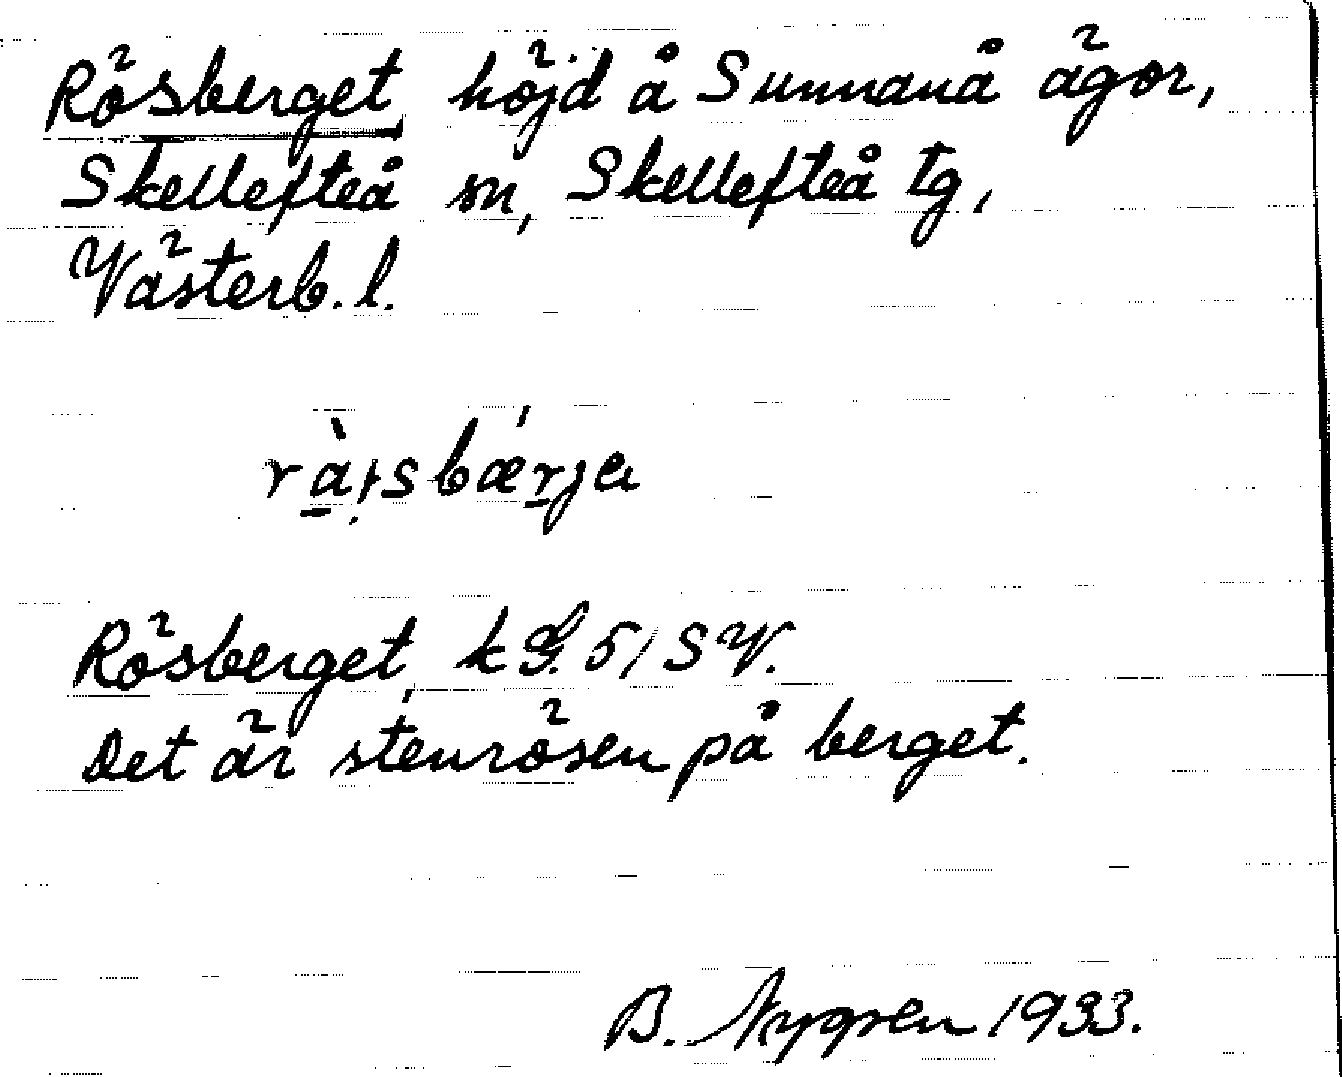 Rösberget höjd å Sunnanå ägor,
Skellefteå sn, Skellefteå tg,
Västerb. l.
Rösberget, k G. 5/SV.
Det är stenrösen på berget.
B. Nygren 1933.